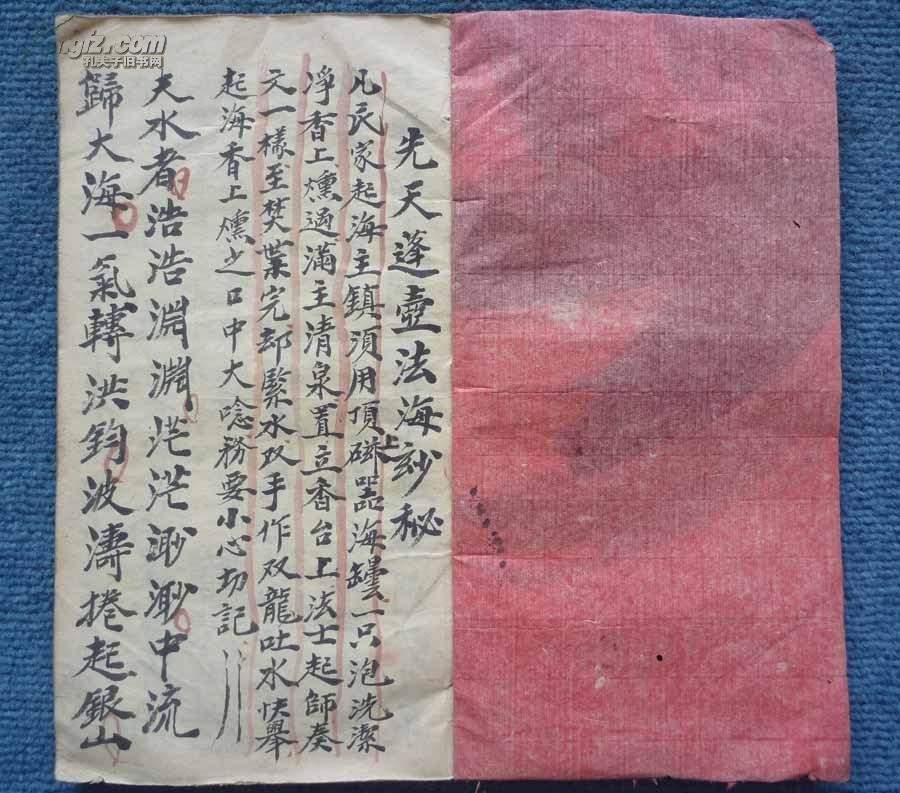 先天蓬壺法海玅秘
凡民家起海主鎮須用頂上磁器海罎一只泡洗潔
淨香上燻過滿主清泉置立香台上法士起師奏
文一樣至焚葉完部緊水双手作双龍吐水快舉
起海香上燻之口中大唸務要小心切記
夫水者浩浩淵淵茫茫渺渺中流
歸大海一氣轉洪鈞波濤捲起銀山
giz.com
孔夫子旧书网